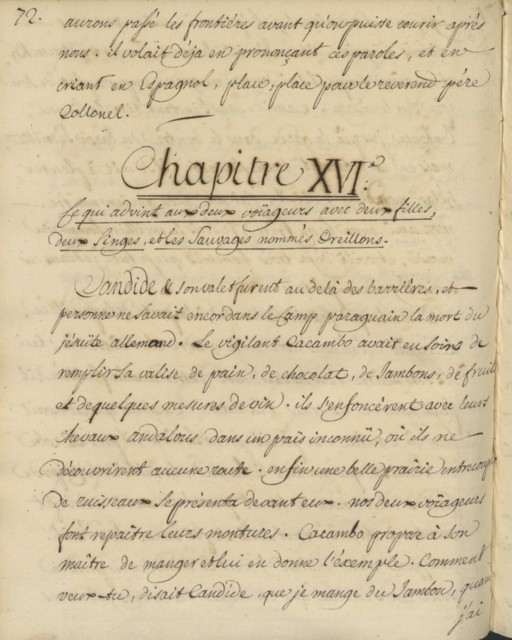 72.
aurons passé les frontiéres avant qu'on puisse courir aprés
nous. il volait déja en prononçant ces paroles, et en
criant en Espagnol, place, place pour le réverend pére
Collonel.
Chapitre XVI.e
Ce qui advint aux deux voïageurs avec deux filles,
deux Singes, et les Sauvages nommés Oreillons.
Candide & son valet furent au delà des barriéres, et
personne ne Savait encor dans le Camp paraguain la mort du
jésuïte allemand. Le vigilant Cacambo avait eu Soin de
remplir Sa valise de pain, de chocolat, de Jambons, de fruit
et de quelques mesures de vin. ils s'enfoncérent avec leurs
chevaux andalous dans un païs inconnü, où ils ne
découvrirent aucune route. enfin une belle prairie entrecoupé
de ruisseaux Se présenta devant eux. nos deux voïageurs
font repaître leurs montures. Cacambo propose à Son
maître de manger et lui en donne l'éxemple. Comment
veux-tu, disait Candide, que je mange du Jambon, quan
j'ai